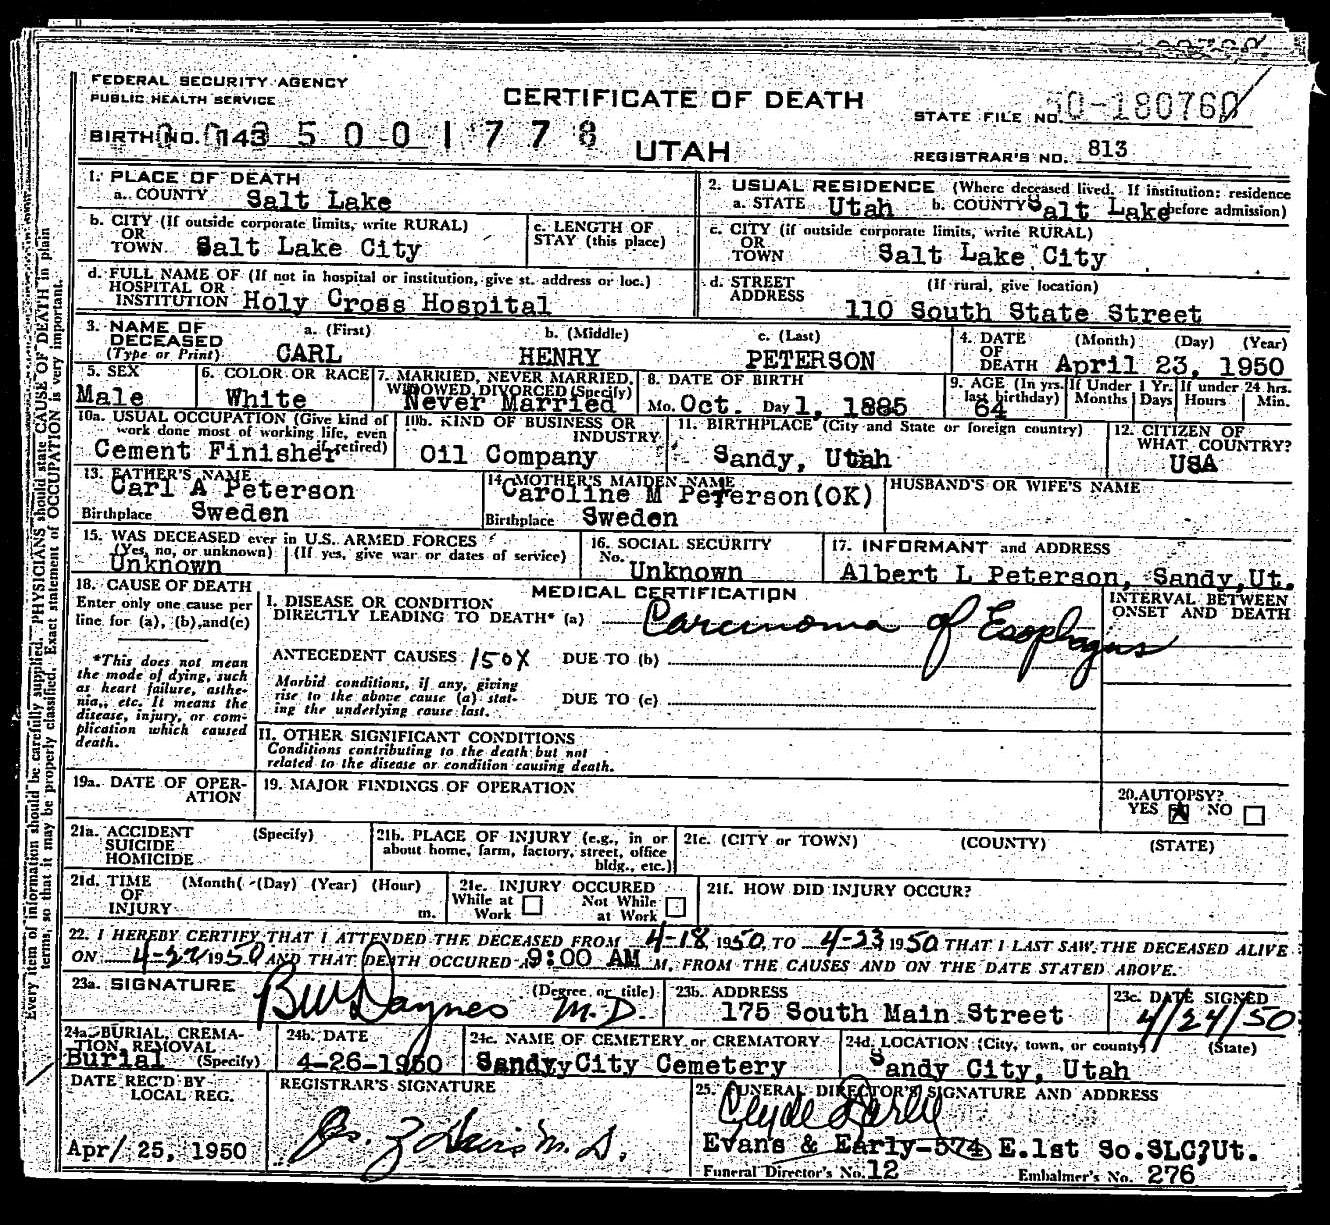 FEDERAL SECURITY AGENCY
PUBLIC HEALTH SERVICE
CERTIFICATE OF DEATH
STATE FILE NO. 50-180760
BIRTH NO. 143 5001778
UTAH
REGISTRAR'S NO. 813
1. PLACE OF DEATH
a. COUNTY Salt Lake
2. USUAL RESIDENCE (Where deceased lived. If institution: residence before admission)
a. STATE Utah b. COUNTY Salt Lake
b. CITY (If outside corporate limits, write RURAL)
OR
TOWN Salt Lake City
c. LENGTH OF
STAY (this place)
c. CITY (if outside corporate limits, write RURAL)
OR
TOWN Salt Lake City
d. FULL NAME OF (If not in hospital or institution, give st. address or loc.)
HOSPITAL OR
INSTITUTION Holy Cross Hospital
d. STREET (If rural, give location)
ADDRESS 110 South State Street
3. NAME OF
DECEASED
(Type or Print)
a. (First) b. (Middle) c. (Last)
CARL HENRY PETERSON
4. DATE (Month) (Day) (Year)
OF
DEATH April 23, 1950
5. SEX
Male
6. COLOR OR RACE
White
7. MARRIED, NEVER MARRIED,
WIDOWED, DIVORCED (Specify)
Never Married
8. DATE OF BIRTH
Mo. Oct. Day 1, 1885
9. AGE (In yrs.
last birthday)
64
If Under 1 Yr.
Months Days
If under 24 hrs.
Hours Min.
10a. USUAL OCCUPATION (Give kind of
work done most of working life, even
if retired)
Cement Finisher
10b. KIND OF BUSINESS OR
INDUSTRY
Oil Company
11. BIRTHPLACE (City and State or foreign country)
Sandy, Utah
12. CITIZEN OF
WHAT COUNTRY?
USA
13. FATHER'S NAME
Carl A Peterson
Birthplace Sweden
14. MOTHER'S MAIDEN NAME
Caroline M Peterson(OK)
Birthplace Sweden
HUSBAND'S OR WIFE'S NAME
15. WAS DECEASED ever in U.S. ARMED FORCES
(Yes, no, or unknown) (If yes, give war or dates of service)
Unknown
16. SOCIAL SECURITY
No. Unknown
17. INFORMANT and ADDRESS
Albert L Peterson, Sandy, Ut.
18. CAUSE OF DEATH
Enter only one cause per
line for (a), (b), and (c)
*This does not mean
the mode of dying, such
as heart failure, asthe-
nia, etc. It means the
disease, injury, or com-
plication which caused
death.
MEDICAL CERTIFICATION
I. DISEASE OR CONDITION
DIRECTLY LEADING TO DEATH* (a) Carcinoma of Esophagus
ANTECEDENT CAUSES 150X DUE TO (b)
Morbid conditions, if any, giving
rise to the above cause (a) stat-
ing the underlying cause last.
DUE TO (c)
INTERVAL BETWEEN
ONSET AND DEATH
II. OTHER SIGNIFICANT CONDITIONS
Conditions contributing to the death but not
related to the disease or condition causing death.
19a. DATE OF OPER-
ATION
19. MAJOR FINDINGS OF OPERATION
20. AUTOPSY?
YES X NO
21a. ACCIDENT (Specify)
SUICIDE
HOMICIDE
21b. PLACE OF INJURY (e.g., in or
about home, farm, factory, street, office
bldg., etc.)
21c. (CITY or TOWN) (COUNTY) (STATE)
21d. TIME (Month( (Day) (Year) (Hour)
OF
INJURY m.
21e. INJURY OCCURED
While at Work Not While at Work
21f. HOW DID INJURY OCCUR?
22. I HEREBY CERTIFY THAT I ATTENDED THE DECEASED FROM 4-18 1950, TO 4-23 1950 THAT I LAST SAW THE DECEASED ALIVE
ON 4-22 1950 AND THAT DEATH OCCURED AT 9:00 AM M. FROM THE CAUSES AND ON THE DATE STATED ABOVE.
23a. SIGNATURE (Degree or title)
BW Daynes M.D.
23b. ADDRESS
175 South Main Street
23c. DATE SIGNED
4/24/50
24a. BURIAL, CREMA-
TION, REMOVAL
Burial (Specify)
24b. DATE
4-26-1950
24c. NAME OF CEMETERY or CREMATORY
Sandy City Cemetery
24d. LOCATION (City, town, or county) (State)
Sandy City, Utah
DATE REC'D BY
LOCAL REG.
Apr/ 25, 1950
REGISTRAR'S SIGNATURE
M.D.
25. FUNERAL DIRECTOR'S SIGNATURE AND ADDRESS
Clyde Early
Evans & Early-574 E.1st So.SLC, Ut.
Funeral Director's No. 12 Embalmer's No. 276
Every item of information should be carefully supplied. PHYSICIANS should state CAUSE OF DEATH in plain
terms, so that it may be properly classified. Exact statement of OCCUPATION is very important.